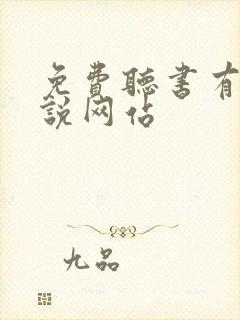 免費聽書有
說网佔
九品